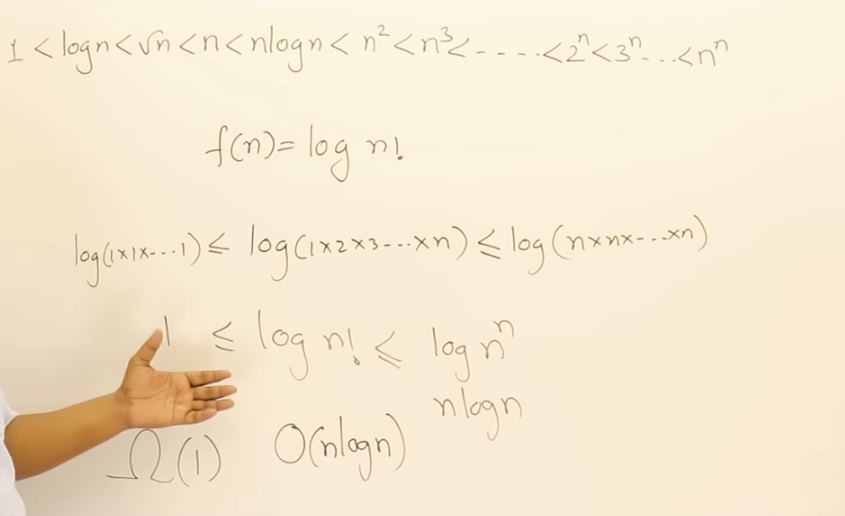 1 < logn < √n < n < nlogn < n² < n³ < - - - - - < 2ⁿ < 3ⁿ - - - < nⁿ
f(n) = log n!
log(1×1×---1) ≤ log(1×2×3---×n) ≤ log(n×n×----×n)
1 ≤ log n! ≤ log nⁿ
nlogn
Ω(1) O(nlogn)